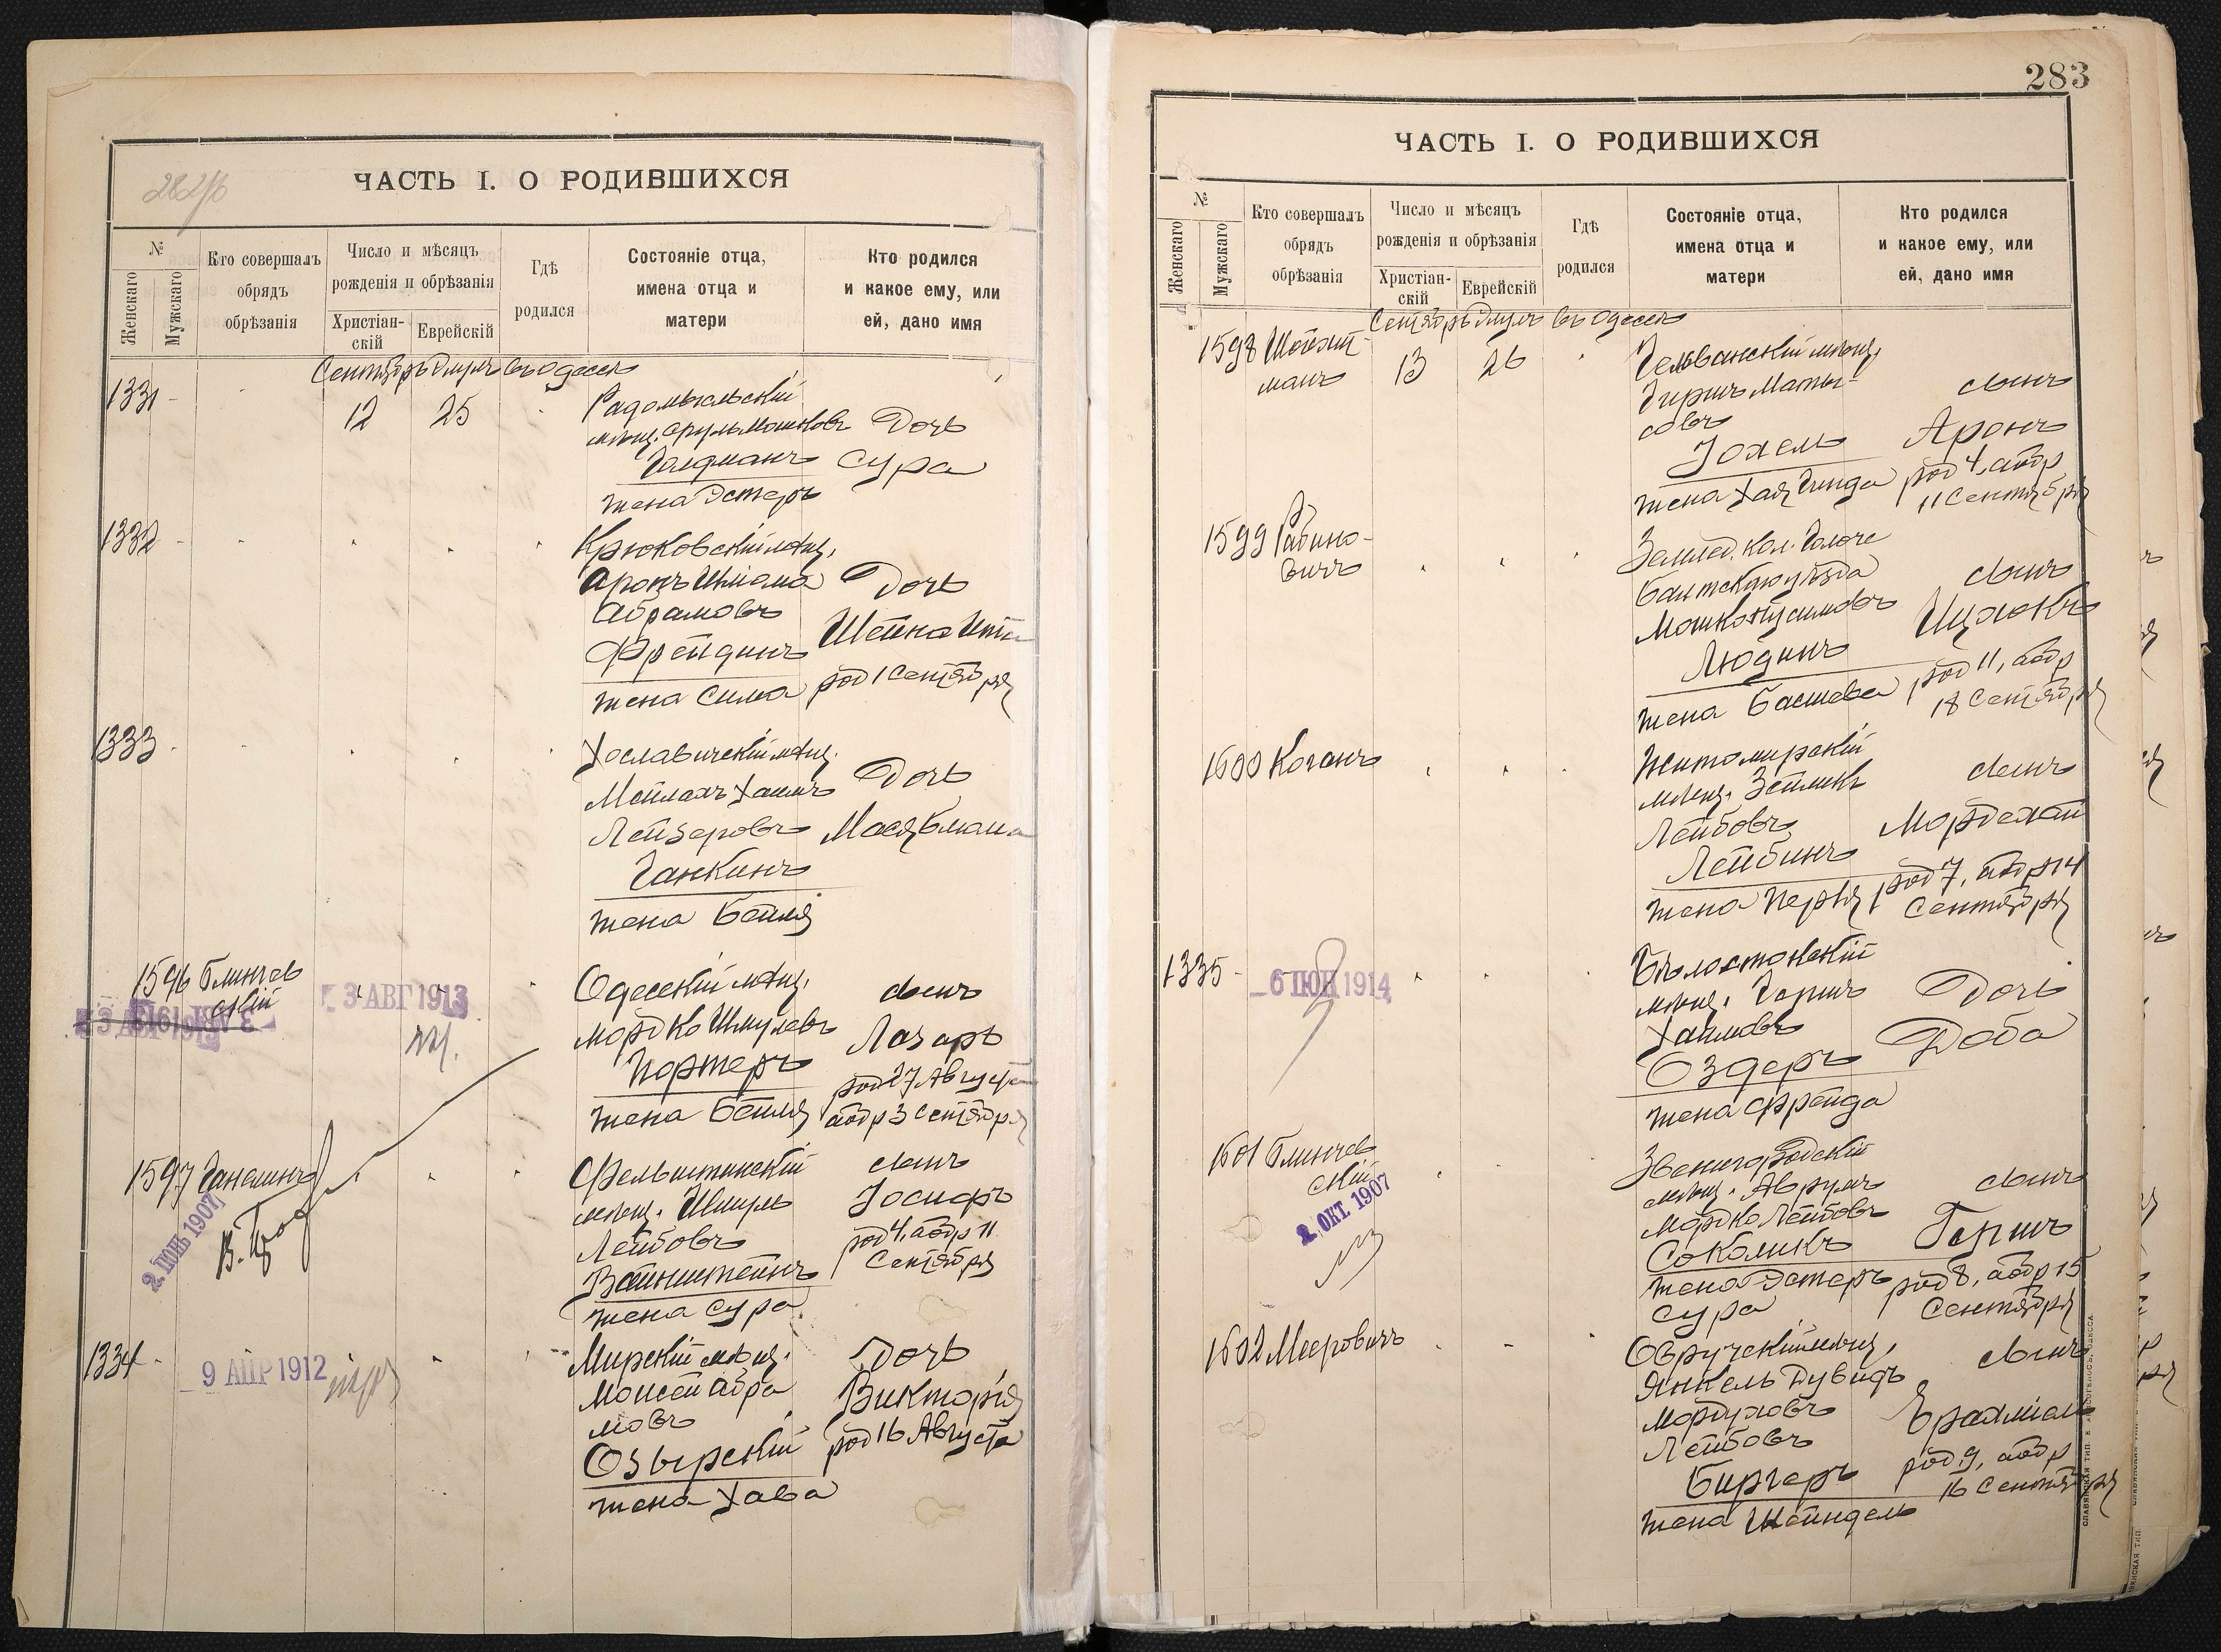 282/б
ЧАСТЬ I. О РОДИВШИХСЯ
№
Женскаго
Мужскаго
Кто совершалъ обрядъ обрѣзанія
Число и мѣсяцъ рожденія и обрѣзанія
Христіан-
скій
Еврейскій
Гдѣ родился
Состояніе отца, имена отца и матери
Кто родился и какое ему, или ей, дано имя
Сентябрь Элулъ въ Одессѣ
1331
12
25
Радомысльскій
мѣщ. Сруль Мошковъ
Дочь
Голдманъ
Сура
жена Эстеръ
1332
Крюковскій мѣщ.
Аронъ Шліома
Дочь
Абрамовъ
Фрейдинъ
Шейна
жена Сима
род 1 Сентября
1333
Хославичскій мѣщ.
Мейлахъ Хаимъ
Дочь
Лейзеровъ
Мася
Ганкинъ
жена Бейля
1596
Блинчев
скій
3 АВГ 1913
Одесскій мѣщ.
сынъ
Мордко Шмулевъ
Лазарь
Портеръ
род 27 Августа
жена Бейля
обр 3 Сентября
1597
Ганелинъ
2 ІЮНЬ 1907
Фельштинскій
сынъ
мѣщ. Шмуль
Іосифъ
Лейбовъ
род 4, обр 11
Вайнштейнъ
Сентября
жена Сура
1334
9 АПР 1912
Мирскій мѣщ.
Дочь
Моисей Абра
Викторія
мовъ
род 16 Августа
Озырскій
жена Хава
283
ЧАСТЬ I. О РОДИВШИХСЯ
№
Женскаго
Мужскаго
Кто совершалъ обрядъ обрѣзанія
Число и мѣсяцъ рожденія и обрѣзанія
Христіан-
скій
Еврейскій
Гдѣ родился
Состояніе отца, имена отца и матери
Кто родился и какое ему, или ей, дано имя
Сентябрь Элулъ въ Одессѣ
1598
манъ
13
26
мѣщ.
Гиршъ Маты-
сынъ
совъ
Іохель
Аронъ
жена Хая Гинда
род 4, обр
11 Сентября
1599
Рабино-
вичъ
Землед. кол.
Балтск. уѣзда
сынъ
Мошко
Ицхокъ
Людинъ
род 11, обр
жена Басшева
18 Сентября
1600
Коганъ
Житомирскій
мѣщ. Зейликъ
сынъ
Лейбовъ
Мордехай
Лейбинъ
род 7, обр 14
жена Перля
Сентября
1335
6 ІЮН 1914
Бѣлостокскій
мѣщ. Гершъ
Дочь
Хаимовъ
Доба
Оздеръ
жена Фрейда
1601
Блинчев
скій
2 ОКТ. 1907
Звенигородскій
мѣщ. Аврумъ
сынъ
Мордко Лейбовъ
Гершъ
Соколикъ
жена Эстеръ
род 8, обр 15
Сура
Сентября
1602
Мееровичъ
Овручскій мѣщ.
сынъ
Янкель Дувидъ
Мордуховъ
Ерахміель
Лейбовъ
род 9, обр
Биргеръ
16 Сентября
жена Шейндель